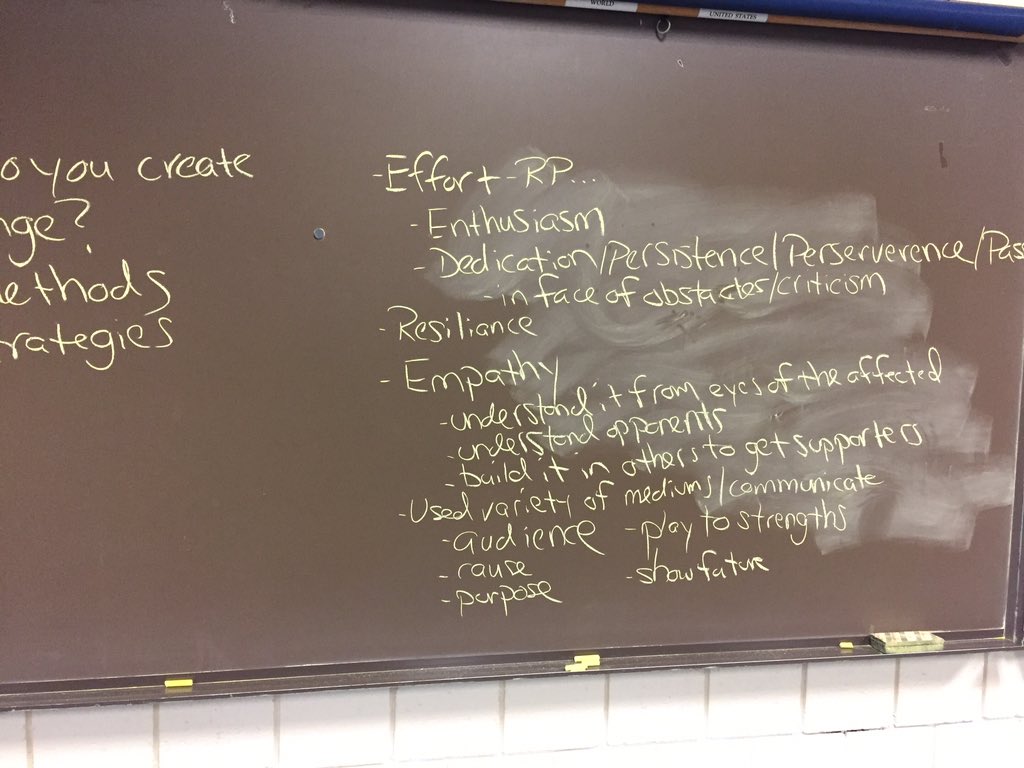 WORLD
UNITED STATES
o you create
nge?
ethods
rategies
- Effort - RP...
- Enthusiasm
- Dedication/Persistence/Perserverence/Pas
- in face of obstacles/criticism
- Resiliance
- Empathy
- understand it from eyes of the affected
- understand opponents
- build it in others to get supporters
- Used variety of mediums/communicate
- audience - play to strengths
- cause - show future
- purpose